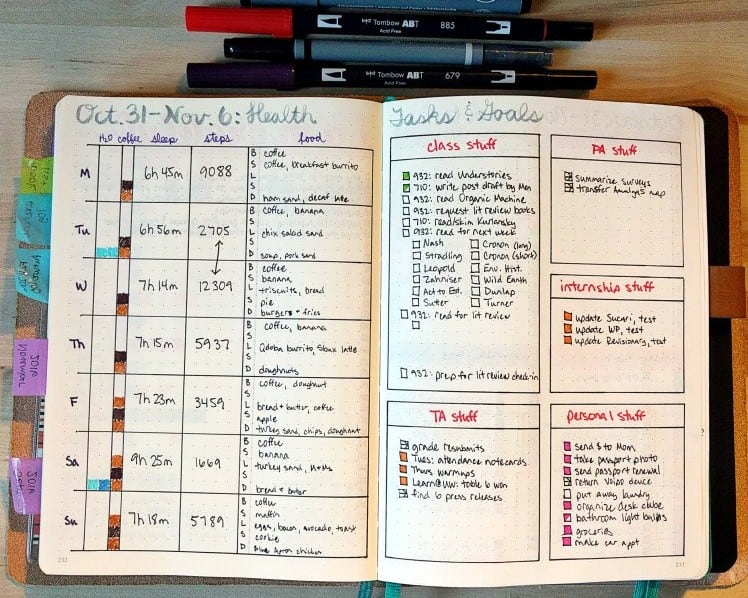 Tombow ABT 885
Acid Free
Tombow ABT 679
Acid Free
Oct. 31-Nov. 6: Health
H2O coffee sleep steps food
M 6h 45m 9088
B coffee
S coffee, breakfast burrito
L
S
D ham sand, decaf latte
Tu 6h 56m 2705
B coffee, banana
S
L chix salad sand
S
D soup, pork sand
W 7h 14m 12309
B coffee
S banana
L triscuits, bread
S pie
D burgers + fries
Th 7h 15m 5937
B coffee, banana
S
L Qdoba burrito, Sbux latte
S
D doughnuts
F 7h 23m 3459
B coffee, doughnut
S
L bread + butter, coffee
S apple
D turkey sand, chips, doughnut
Sa 9h 25m 1669
B coffee
S banana
L turkey sand, M+Ms
S
D bread + butter
Su 7h 18m 5789
B coffee
S muffin
L eggs, bacon, avocado, toast
S cookie
D Blue Apron chicken
232
Tasks & Goals
class stuff
932: read Understories
710: write post draft by Mon
932: read Organic Machine
932: request lit review books
710: read/skim Kurlansky
932: read for next week
Nash Cronon (long)
Stradling Cronon (short)
Leopold Env. Hist.
Zahniser Wild Earth
Act to Est. Dunlap
Sutter Turner
932: read for lit review
932: prep for lit review check-in
PA stuff
summarize surveys
transfer Analysis map
internship stuff
update Sucuri, test
update WP, test
update Revisionary, test
TA stuff
grade resubmits
Tues: attendance notecards
Thurs warmups
Learn@UW: table 6 won
find 6 press releases
personal stuff
send $ to Mom
take passport photo
send passport renewal
return Voipo device
put away laundry
organize desk cube
bathroom light bulbs
groceries
make car appt
233